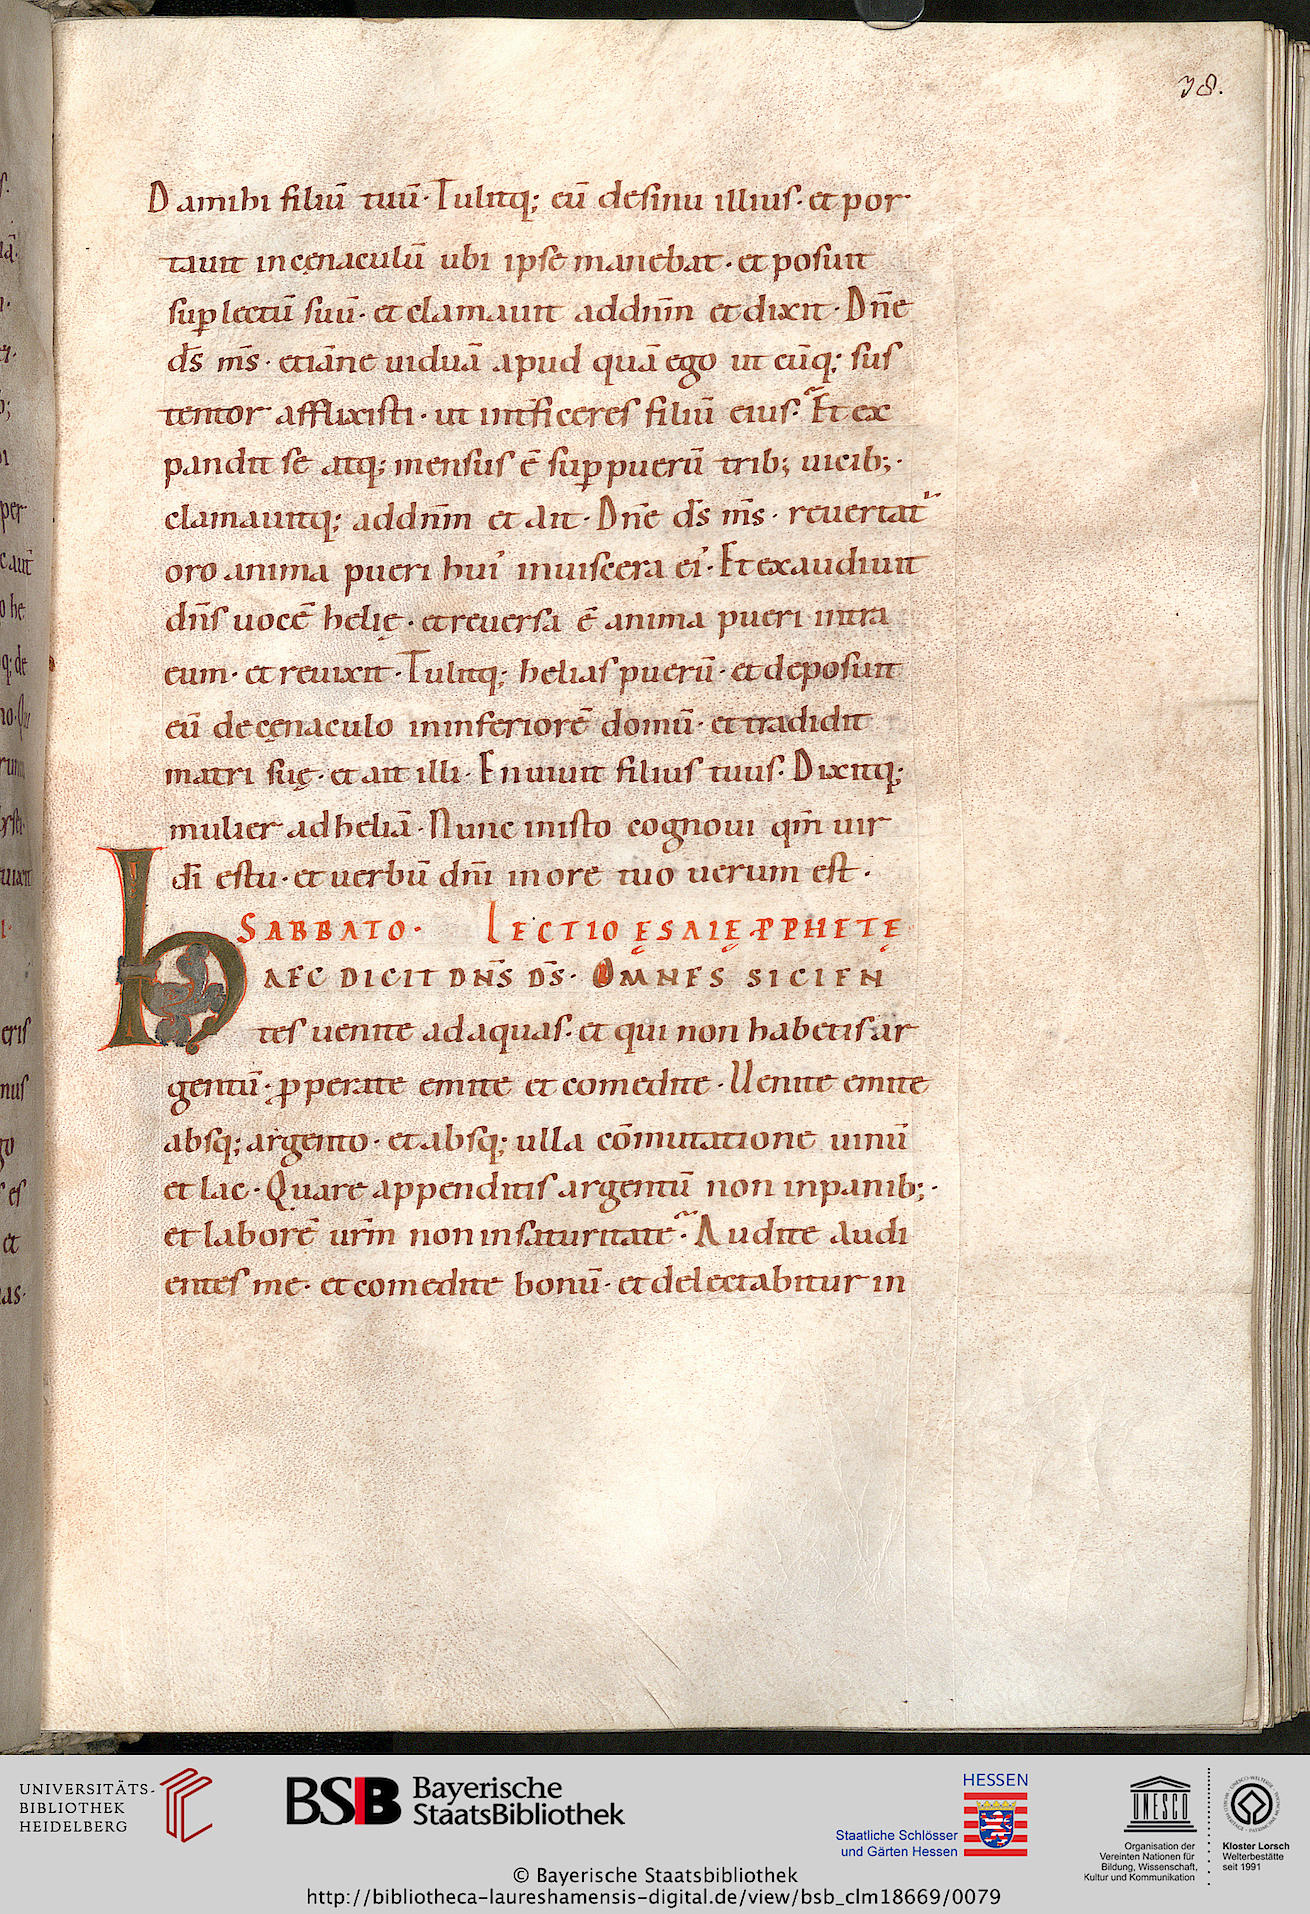 38.
Da mihi filiū tuū· Tulitq; eū de sinu illius· et por
tauit in cęnaculū ubi ipse manebat· et posuit
sup̱ lectū suū· et clamauit ad dn̄m et dixit· Dn̄e
ds̄ ms̄· etiāne uiduā apud quā ego ut cūq; sus
tentor afflixisti· ut int̄ficeres filiū eius· Et ex
pandit se atq; mensus ē sup̱ puerū trib; uicib;·
clamauitq; ad dn̄m et ait· Dn̄e ds̄ ms̄· reuertat᷑
oro anima pueri hui᾿ in uiscera ei᾿· Et exaudiuit
dn̄s uocē helię· et reuersa ē anima pueri intra
eum· et reuixit· Tulitq; helias puerū· et deposuit
eū de cęnaculo in inferiorē domū· et tradidit
matri suę· et ait illi· En uiuit filius tuus· Dixitq;
mulier ad heliā· Nunc in isto cognoui qm̄ uir
dī es tu· et uerbū dn̄i in ore tuo uerum est·
SABBATO· LECTIO ĘSAIĘ ꝒPHETĘ
HAEC DICIT DN̄S DS̄· OMNES SICIEN
tes uenite ad aquas· et qui non habetis ar
gentū· ꝓperate emite et comedite· Uenite emite
absq; argento· et absq; ulla cōmutatione uinū
et lac· Quare appenditis argentū non in panib;·
et laborē ur̄m non in saturitatē· Audite audi
entes me· et comedite bonū· et delectabitur in
UNIVERSITÄTS-
BIBLIOTHEK
HEIDELBERG
BSB Bayerische
StaatsBibliothek
HESSEN
Staatliche Schlösser
und Gärten Hessen
UNESCO
Organisation der
Vereinten Nationen für
Bildung, Wissenschaft,
Kultur und Kommunikation
Kloster Lorsch
Welterbestätte
seit 1991
© Bayerische Staatsbibliothek
http://bibliotheca-laureshamensis-digital.de/view/bsb_clm18669/0079